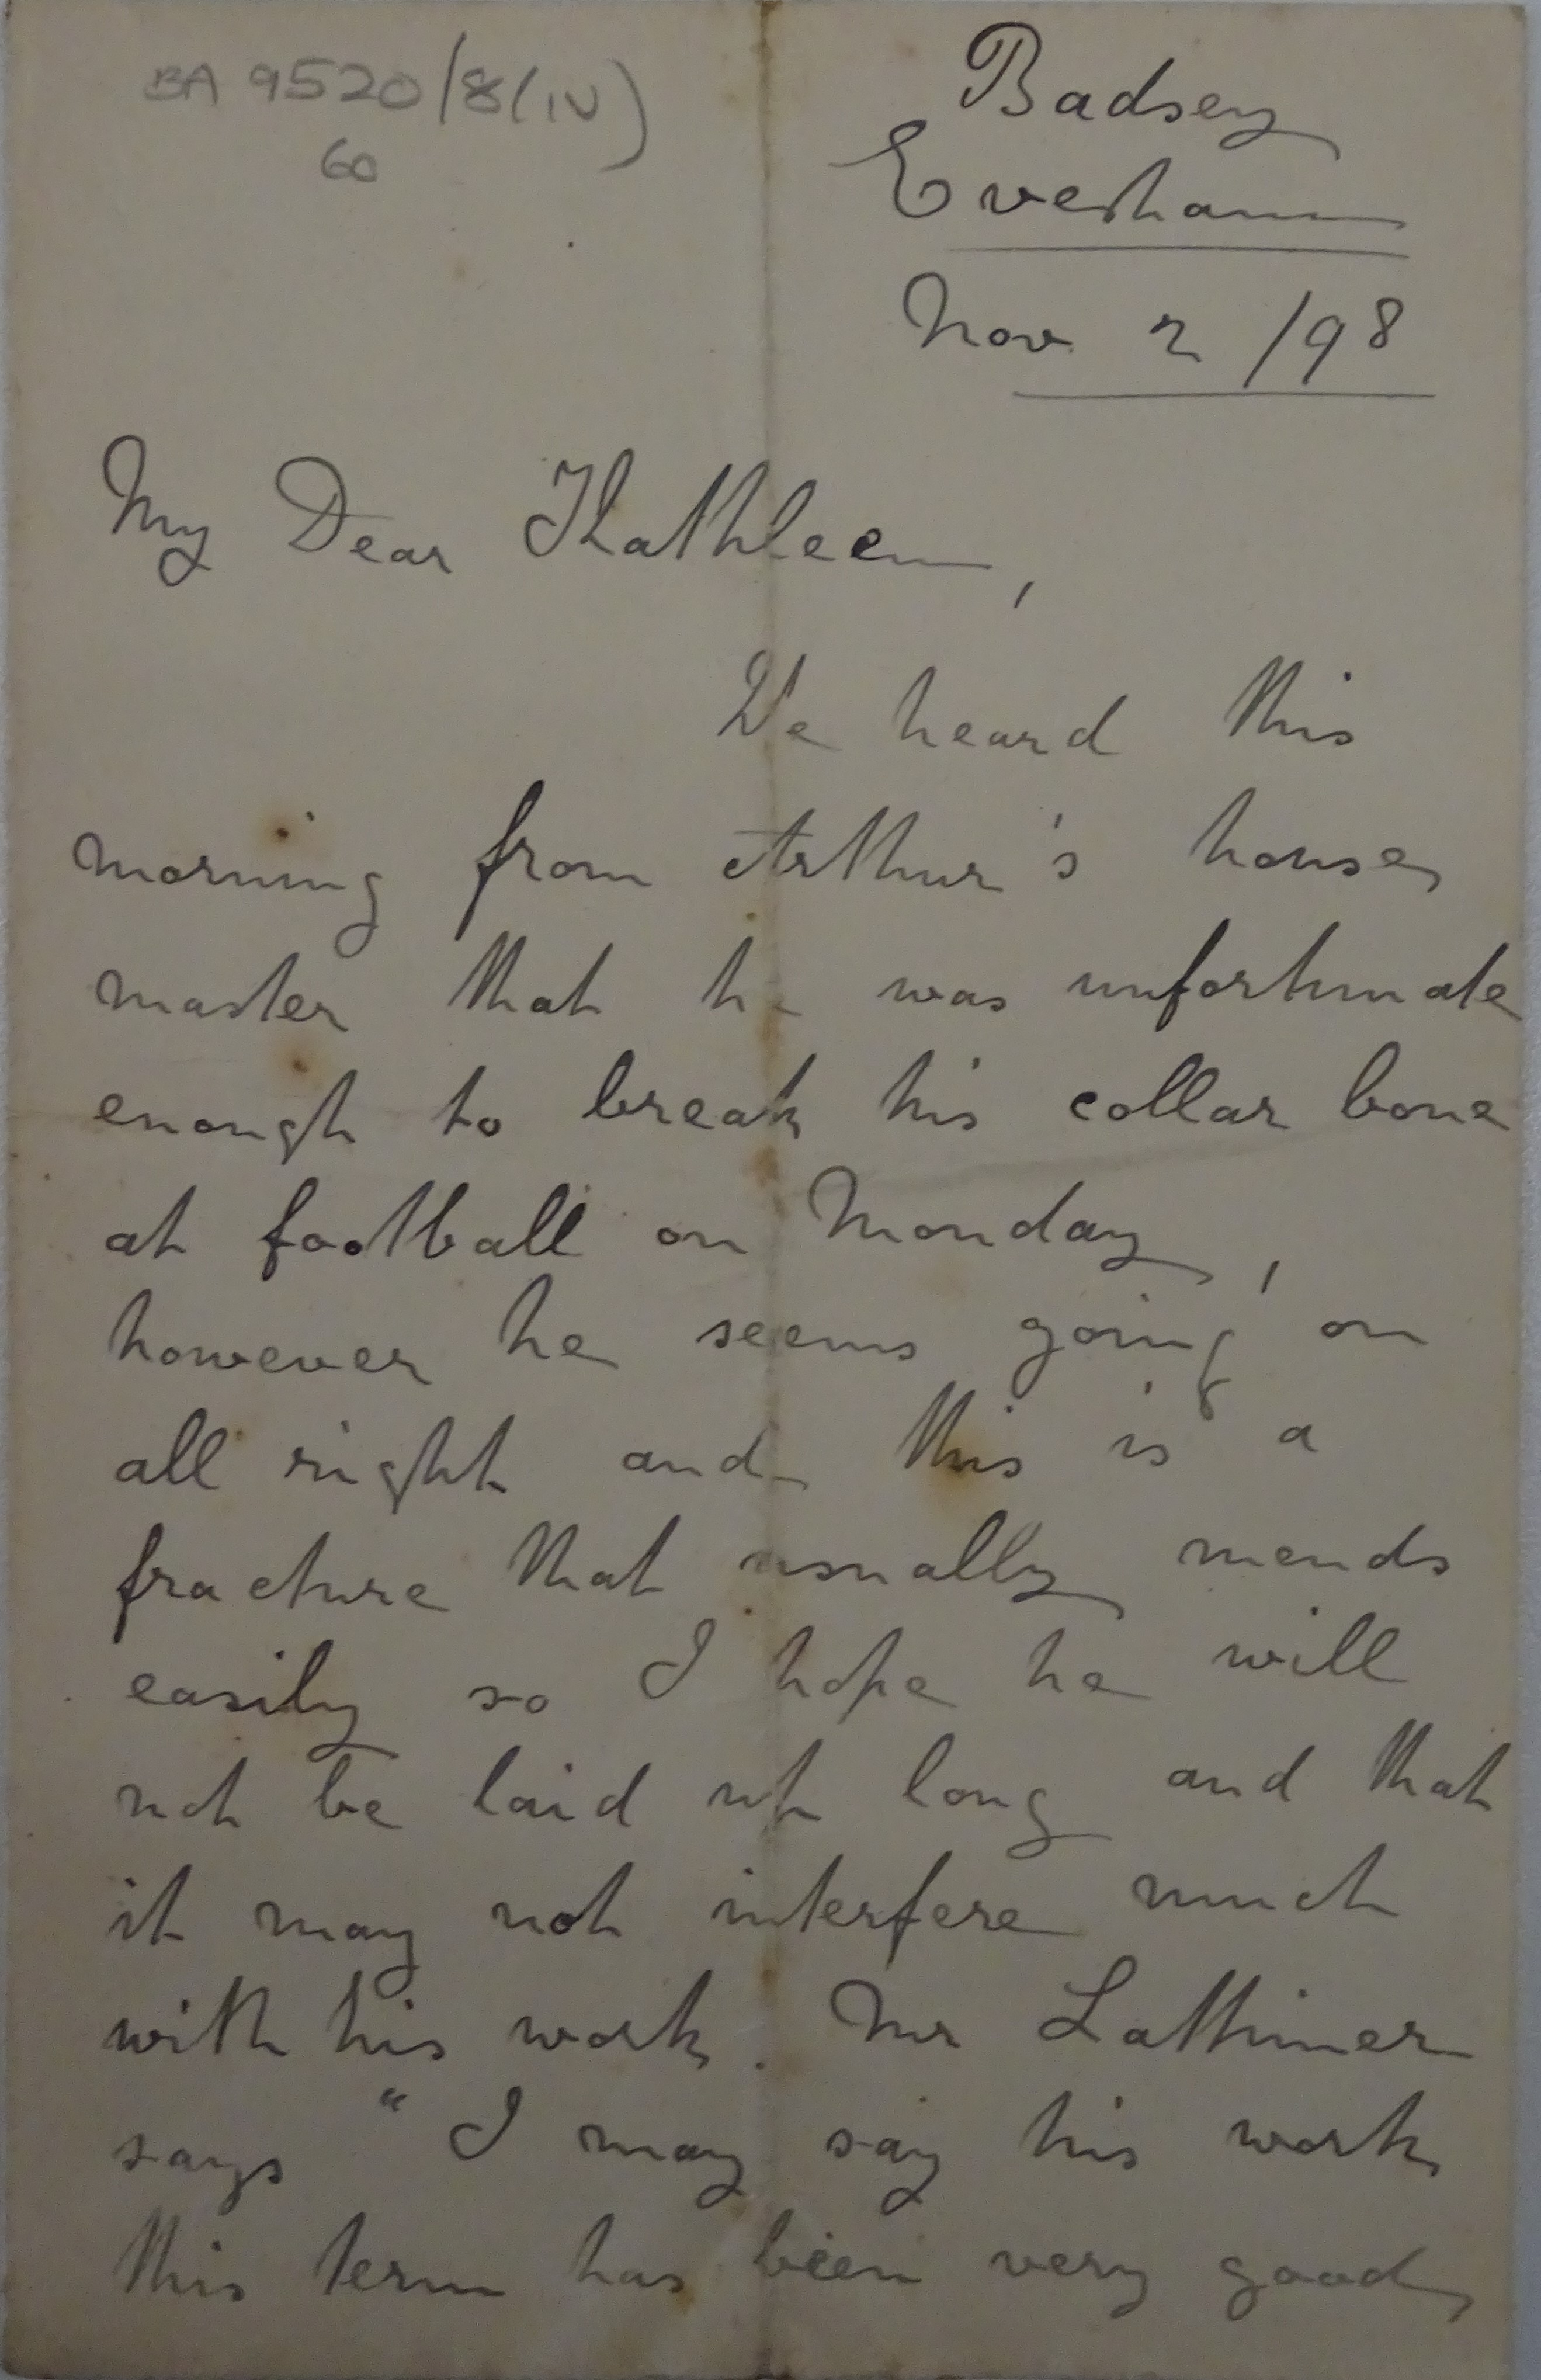 BA 9520/8(iv)
60
Badsey
Evesham
Nov 2 /98
My Dear Kathleen,
We heard this
morning from Arthur's house
master that he was unfortunate
enough to break his collar bone
at football on Monday,
however he seems going on
all right and this is a
fracture that usually mends
easily so I hope he will
not be laid up long and that
it may not interfere much
with his work. Mr Lattimer
says "I may say his work
this term has been very good,